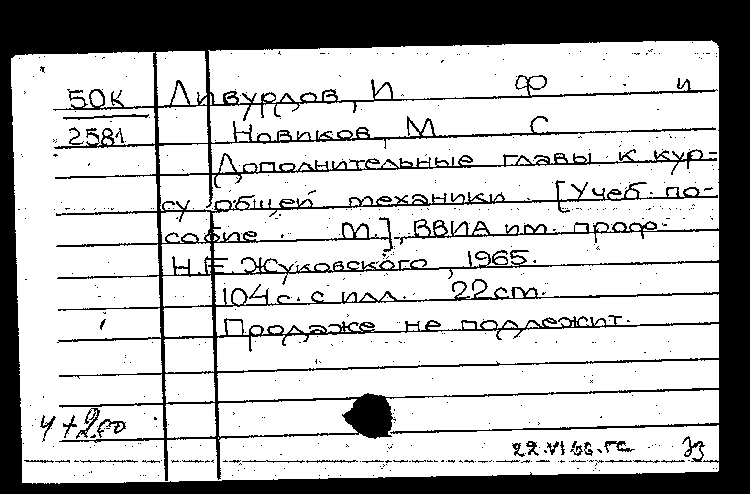 50К Ливурдов, И Ф и
2581 Новиков, М С
Дополнительные главы к кур=
су общей механики. [Учеб. по-
собие. М.], ВВИА им. проф.
Н.Е. Жуковского, 1965.
104 с. с илл. 22 cm.
Продаже не подлежит.
4+200
22.VI 66. гс